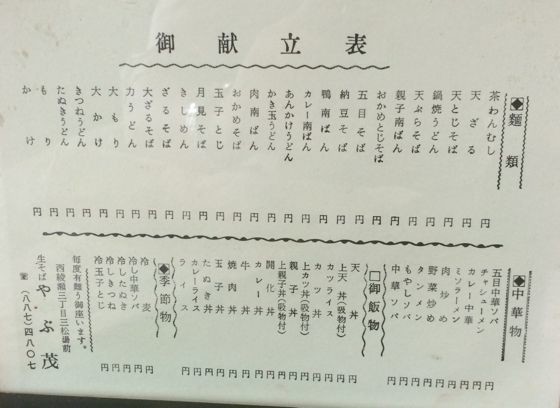 御献立表
◆麺類
茶わんむし 円
天ざる 円
天とじそば 円
鍋焼うどん 円
天ぷらそば 円
親子南ばん 円
おかめとじそば 円
五目そば 円
納豆そば 円
鴨南ばん 円
カレー南ばん 円
あんかけうどん 円
かき玉うどん 円
肉南ばん 円
おかめそば 円
玉子とじ 円
月見そば 円
きしめん 円
ざるそば 円
大ざるそば 円
力うどん 円
大もり 円
大かけ 円
きつねうどん 円
たぬきうどん 円
もり 円
かけ 円
◆中華物
五目中華ソバ 円
チャシューメン 円
カレー中華 円
ミソラーメン 円
肉炒め 円
野菜炒め 円
タンメン 円
もやしソバ 円
中華ソバ 円
□御飯物
天丼 円
上天丼(吸物付) 円
カツライス 円
カツ丼 円
上カツ丼(吸物付) 円
親子丼 円
上親子丼(吸物付) 円
開化丼 円
カレー丼 円
牛丼 円
焼肉丼 円
玉子丼 円
たぬき丼 円
カレーライス 円
ライス 円
◆季節物
冷麦 円
冷し中華ソバ 円
冷したぬき 円
冷しきつね 円
冷玉子とじ 円
毎度有難う御座います。
西綾瀬三丁目三松湯前
生そば やぶ茂
☎(八八七)四八〇七